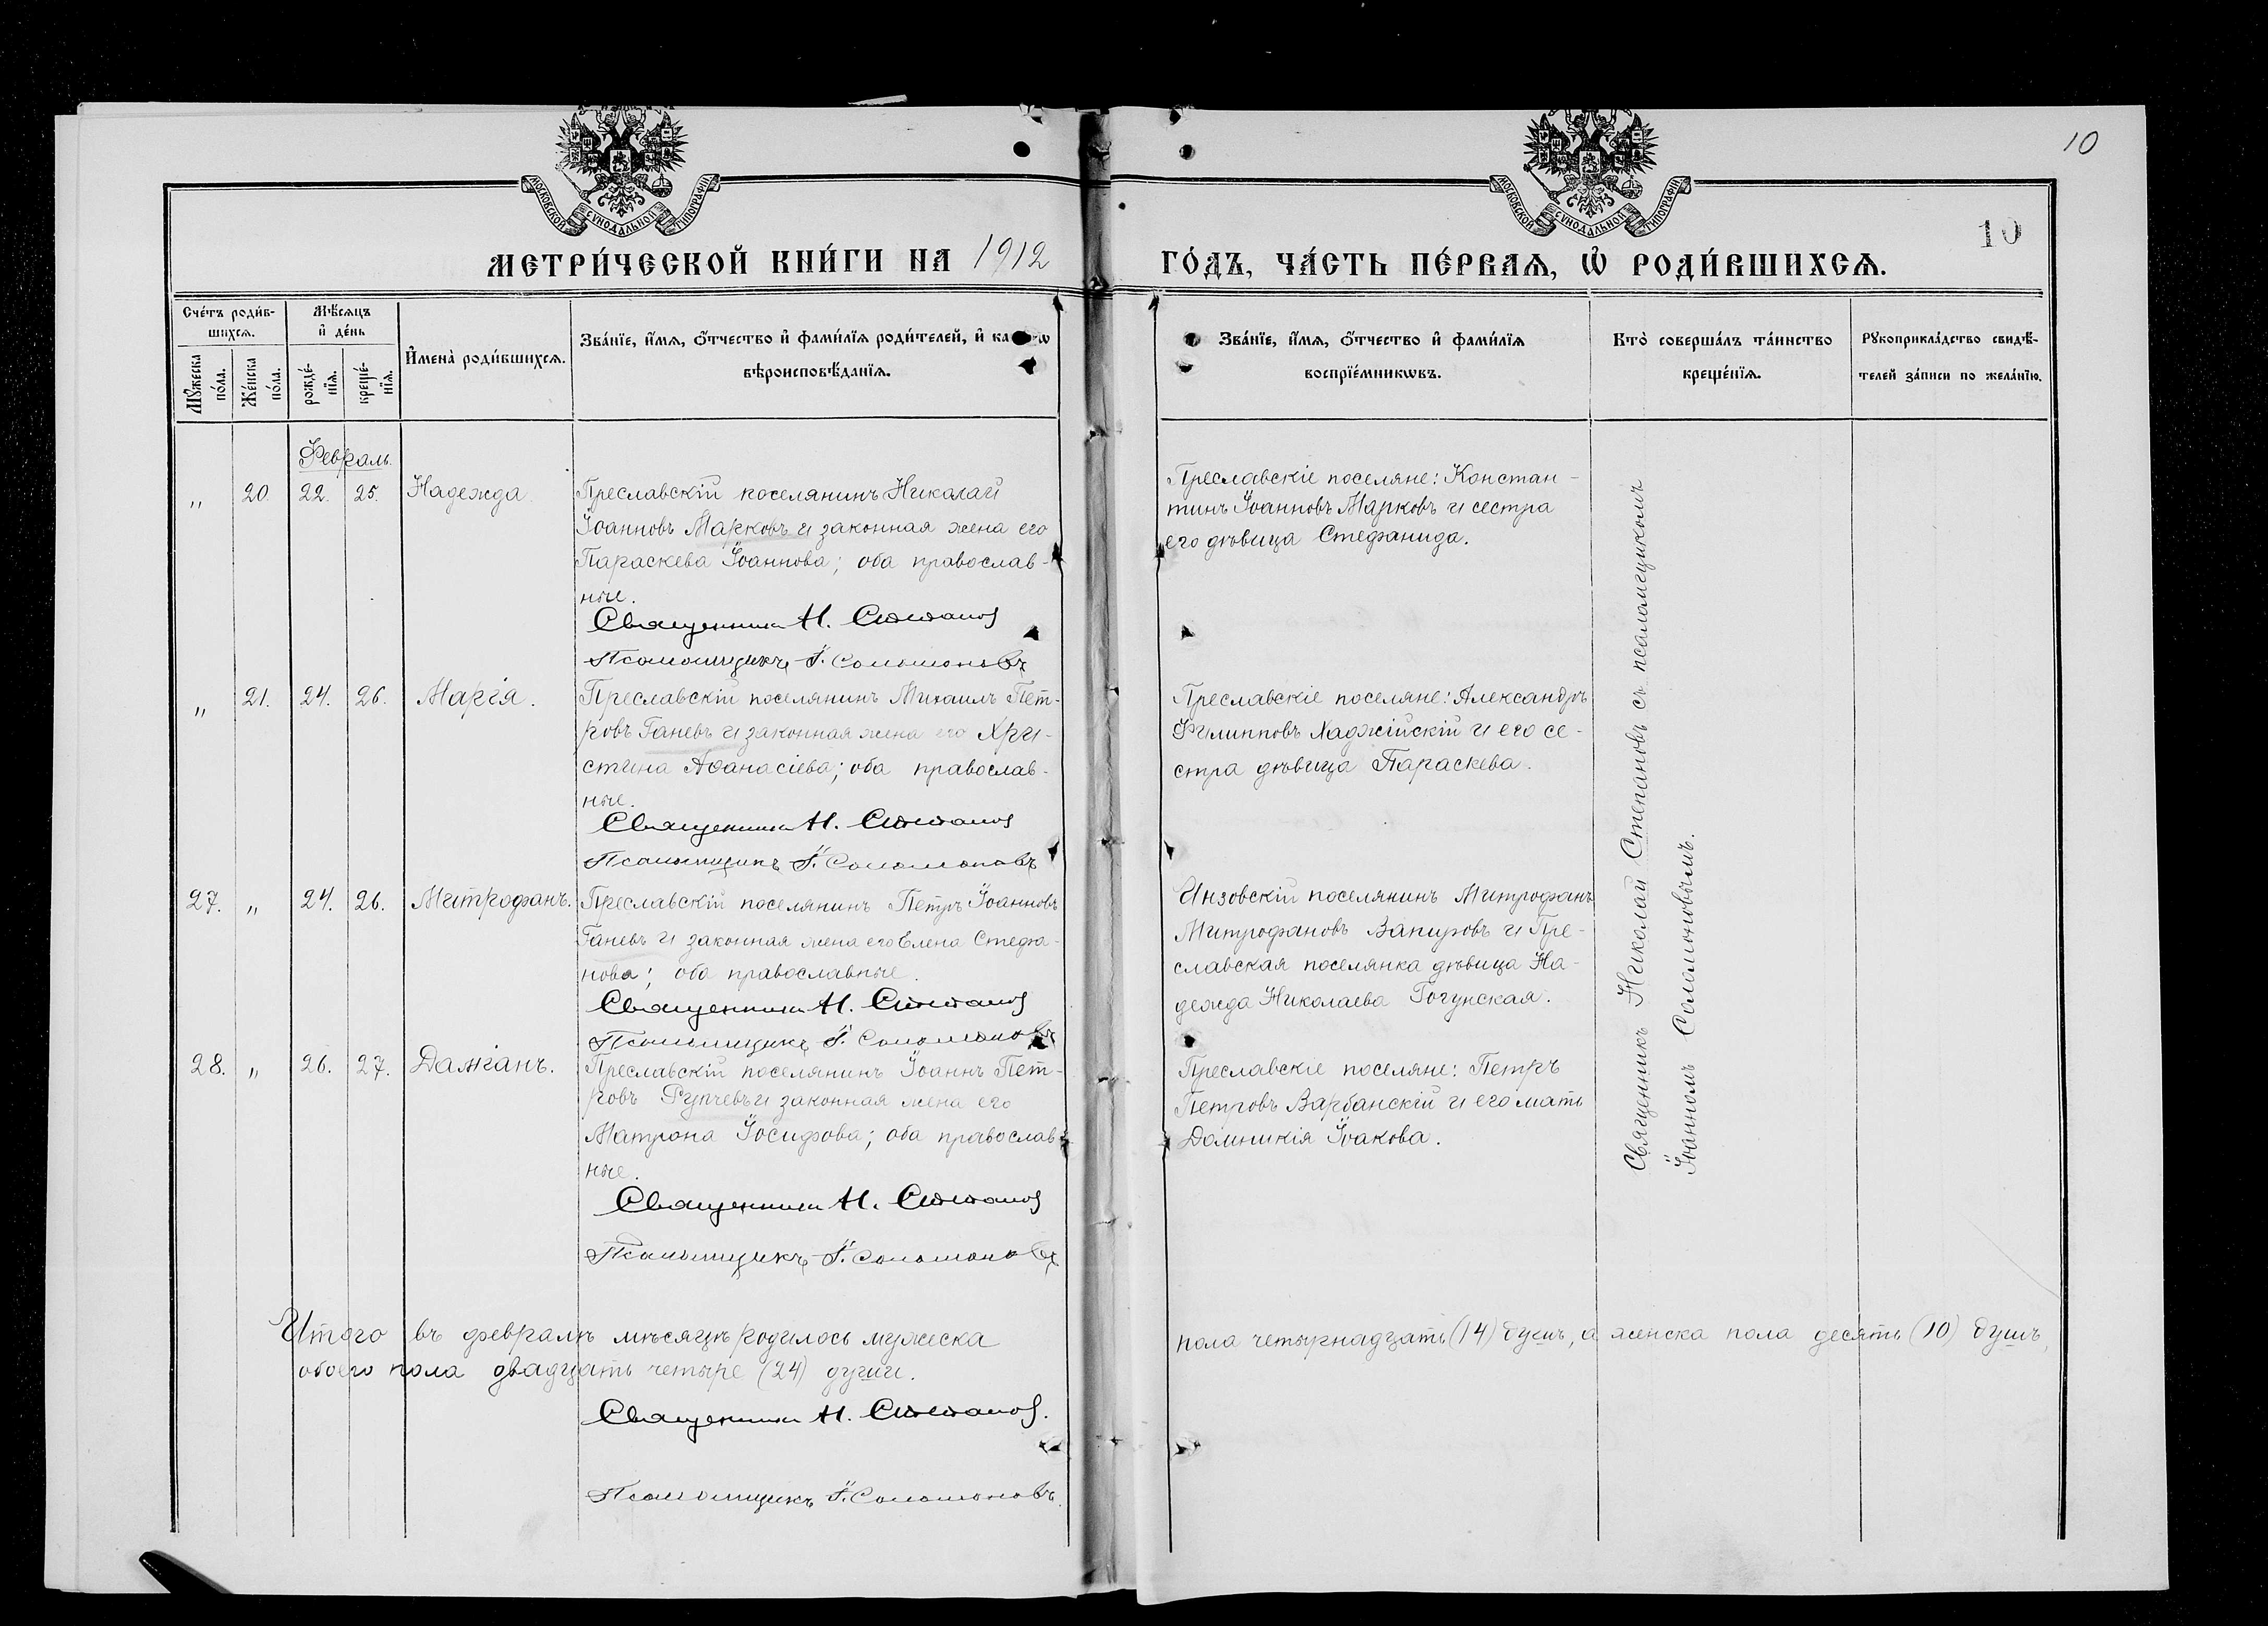 10
МОСКОВСКОЙ СѴНОДАЛЬНОЙ ТИПОГРАФІИ
МОСКОВСКОЙ СѴНОДАЛЬНОЙ ТИПОГРАФІИ
10
МЕТРИ́ЧЕСКОЙ КНИ́ГИ НА 1912 ГО́ДЪ, ЧА́СТЬ ПЕ́РВАѦ, Ѡ҆ РОДИ́ВШИХСѦ.
Сче́тъ роди́в-
шихсѧ.
Мꙋ́жеска по́ла.
Же́нска по́ла.
Мѣ́сѧцъ
и҆ де́нь
рожде́-
нїѧ.
креще́-
нїѧ.
И҆мена̀ роди́вшихсѧ.
Зва́нїе, и҆́мѧ, ѻ҆́тчество и҆ фами́лїѧ роди́телей, и҆ ка
вѣроисповѣ́данїѧ.
Зва́нїе, и҆́мѧ, ѻ҆́тчество и҆ фами́лїѧ
воспрїе́мникѡвъ.
Кто̀ соверша́лъ та́инство
креще́нїѧ.
Рꙋкоприкла́дство свидѣ́-
телей за́писи по жела́нїю.
Февраль.
" 20. 22. 25. Надежда. Преславскій поселянинъ Николай
Іоанновъ Марковъ и законная жена его
Параскева Іоаннова; оба православ-
ные.
Священникъ Н. Степановъ
Псаломщикъ І. Соломоновъ
Преславскіе поселяне: Констан-
тинъ Іоанновъ Марковъ и сестра
его дѣвица Стефанида.
" 21. 24. 26. Марія. Преславскій поселянинъ Михаилъ Пет-
ровъ Ганевъ и законная жена его Хри-
стина Аѳанасіева; оба православ-
ные.
Священникъ Н. Степановъ
Псаломщикъ І. Соломоновъ
Преславскіе поселяне: Александръ
Филипповъ Хаджійскій и его се-
стра дѣвица Параскева.
27. " 24. 26. Митрофанъ. Преславскій поселянинъ Петръ Іоанновъ
Ганевъ и законная жена его Елена Стефа-
нова; оба православные.
Священникъ Н. Степановъ
Псаломщикъ І. Соломоновъ
Инзовскій поселянинъ Митрофанъ
Митрофановъ Вапировъ и Пре-
славская поселянка дѣвица На-
дежда Николаева Гогунская.
28. " 26. 27. Даміанъ. Преславскій поселянинъ Іоаннъ Пет-
ровъ Рупчевъ и законная жена его
Матрона Іосифова; оба православ-
ные.
Священникъ Н. Степановъ
Псаломщикъ І. Соломоновъ
Преславскіе поселяне: Петръ
Петровъ Варбанскій и его мать
Домникія Іоакова.
Священникъ Николай Степановъ съ псаломщикомъ
Іоанномъ Соломоновымъ.
Итого въ февралѣ мѣсяцѣ родилось мужеска пола четырнадцать (14) душъ, а женска пола десять (10) душъ,
обоего пола двадцать четыре (24) души.
Священникъ Н. Степановъ.
Псаломщикъ І. Соломоновъ.